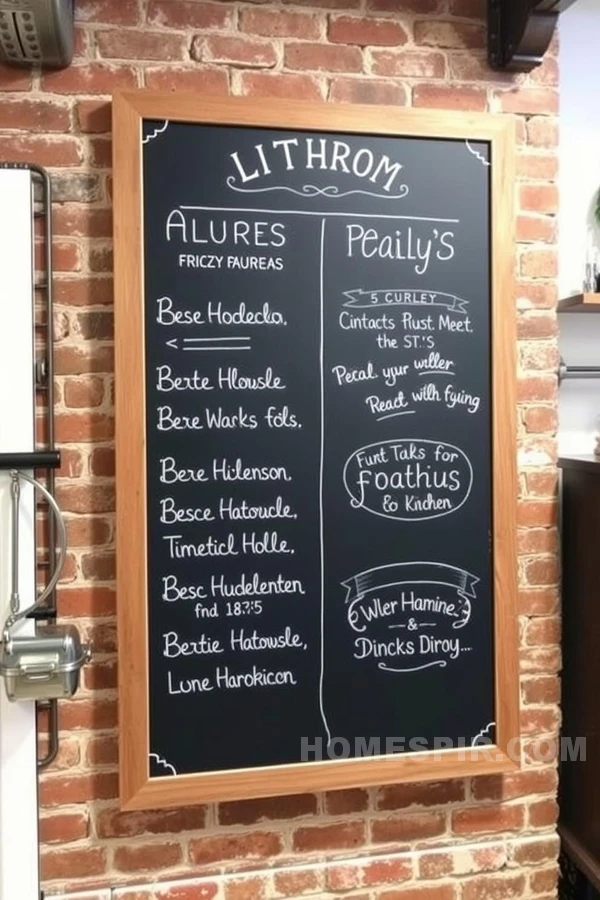 LITHROM
ALURES
FRICZY PAUREAS
Bese Hodecko.
Berte Hlousle
Bere Warks fols.
Bere Hilenson.
Besce Hatoucle,
Timeticl Holle,
Besc Hudelenten
fnd 183:5
Bertie Hatowsle,
Lune Harokicon
Peaily's
5 CURLEY
Cintacts Rust. Meet.
the ST.'S
Pecal. your willer
React with fying
Funt Taks for
foathius
& Kinchen
Wler Hamine.
&
Dincks Diroy...
HOMESPIR.COM